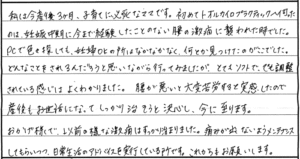 私は今産後3ヶ月、子育てに必死なママです。初めてトポルカイロプラクティックへ伺った
のは、妊娠中期に今まで経験したことのない腰の激痛に襲われた時でした。
PCで色々探しても、妊婦OKの所はなかなかなく、何とか見つけたのがここでした。
どんなことをされるんだろうと思いながら行ってみましたが、とてもソフトで、でも調整
されている感じはよくわかりました。腰が悪いと大変苦労すると実感したので
産後もお世話になってしっかり治そうと決心し、今に至ります。
おかげ様で、以前の様な激痛はすっかり治まりました。痛みが出ないようメンテナンス
してもらいつつ、日常生活のアドバイスを実行している所です。これからもお願いします。